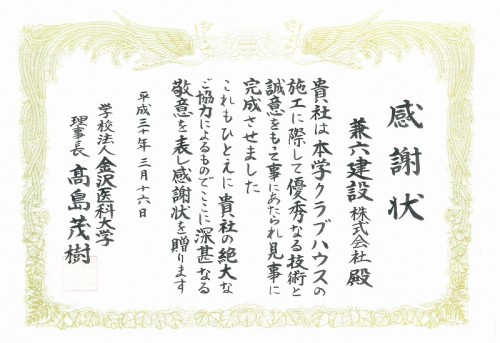 感謝状
兼六建設株式会社 殿
貴社は本学クラブハウスの
施工に際して優秀なる技術と
誠意をもって事にあたられ見事に
完成させました
これもひとえに貴社の絶大な
ご協力によるものでここに深甚なる
敬意を表し感謝状を贈ります
平成三十年三月十六日
学校法人金沢医科大学
理事長 髙島茂樹